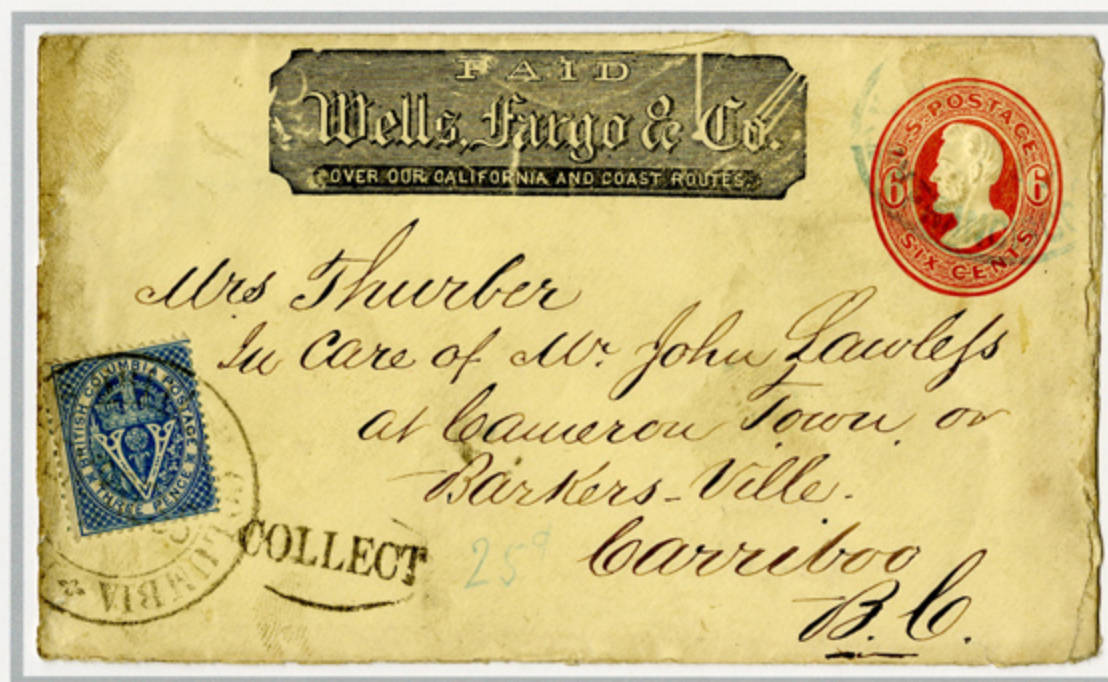 PAID
Wells, Fargo & Co.
OVER OUR CALIFORNIA AND COAST ROUTES.
U.S. POSTAGE
6 6
SIX CENTS
Mrs Thurber
In care of Mr. John Lawless
at Cameron Town or
Barkers-Ville.
Carriboo
B.C.
BRITISH COLUMBIA POSTAGE
V
THREE PENCE
COLUMBIA
COLLECT
25